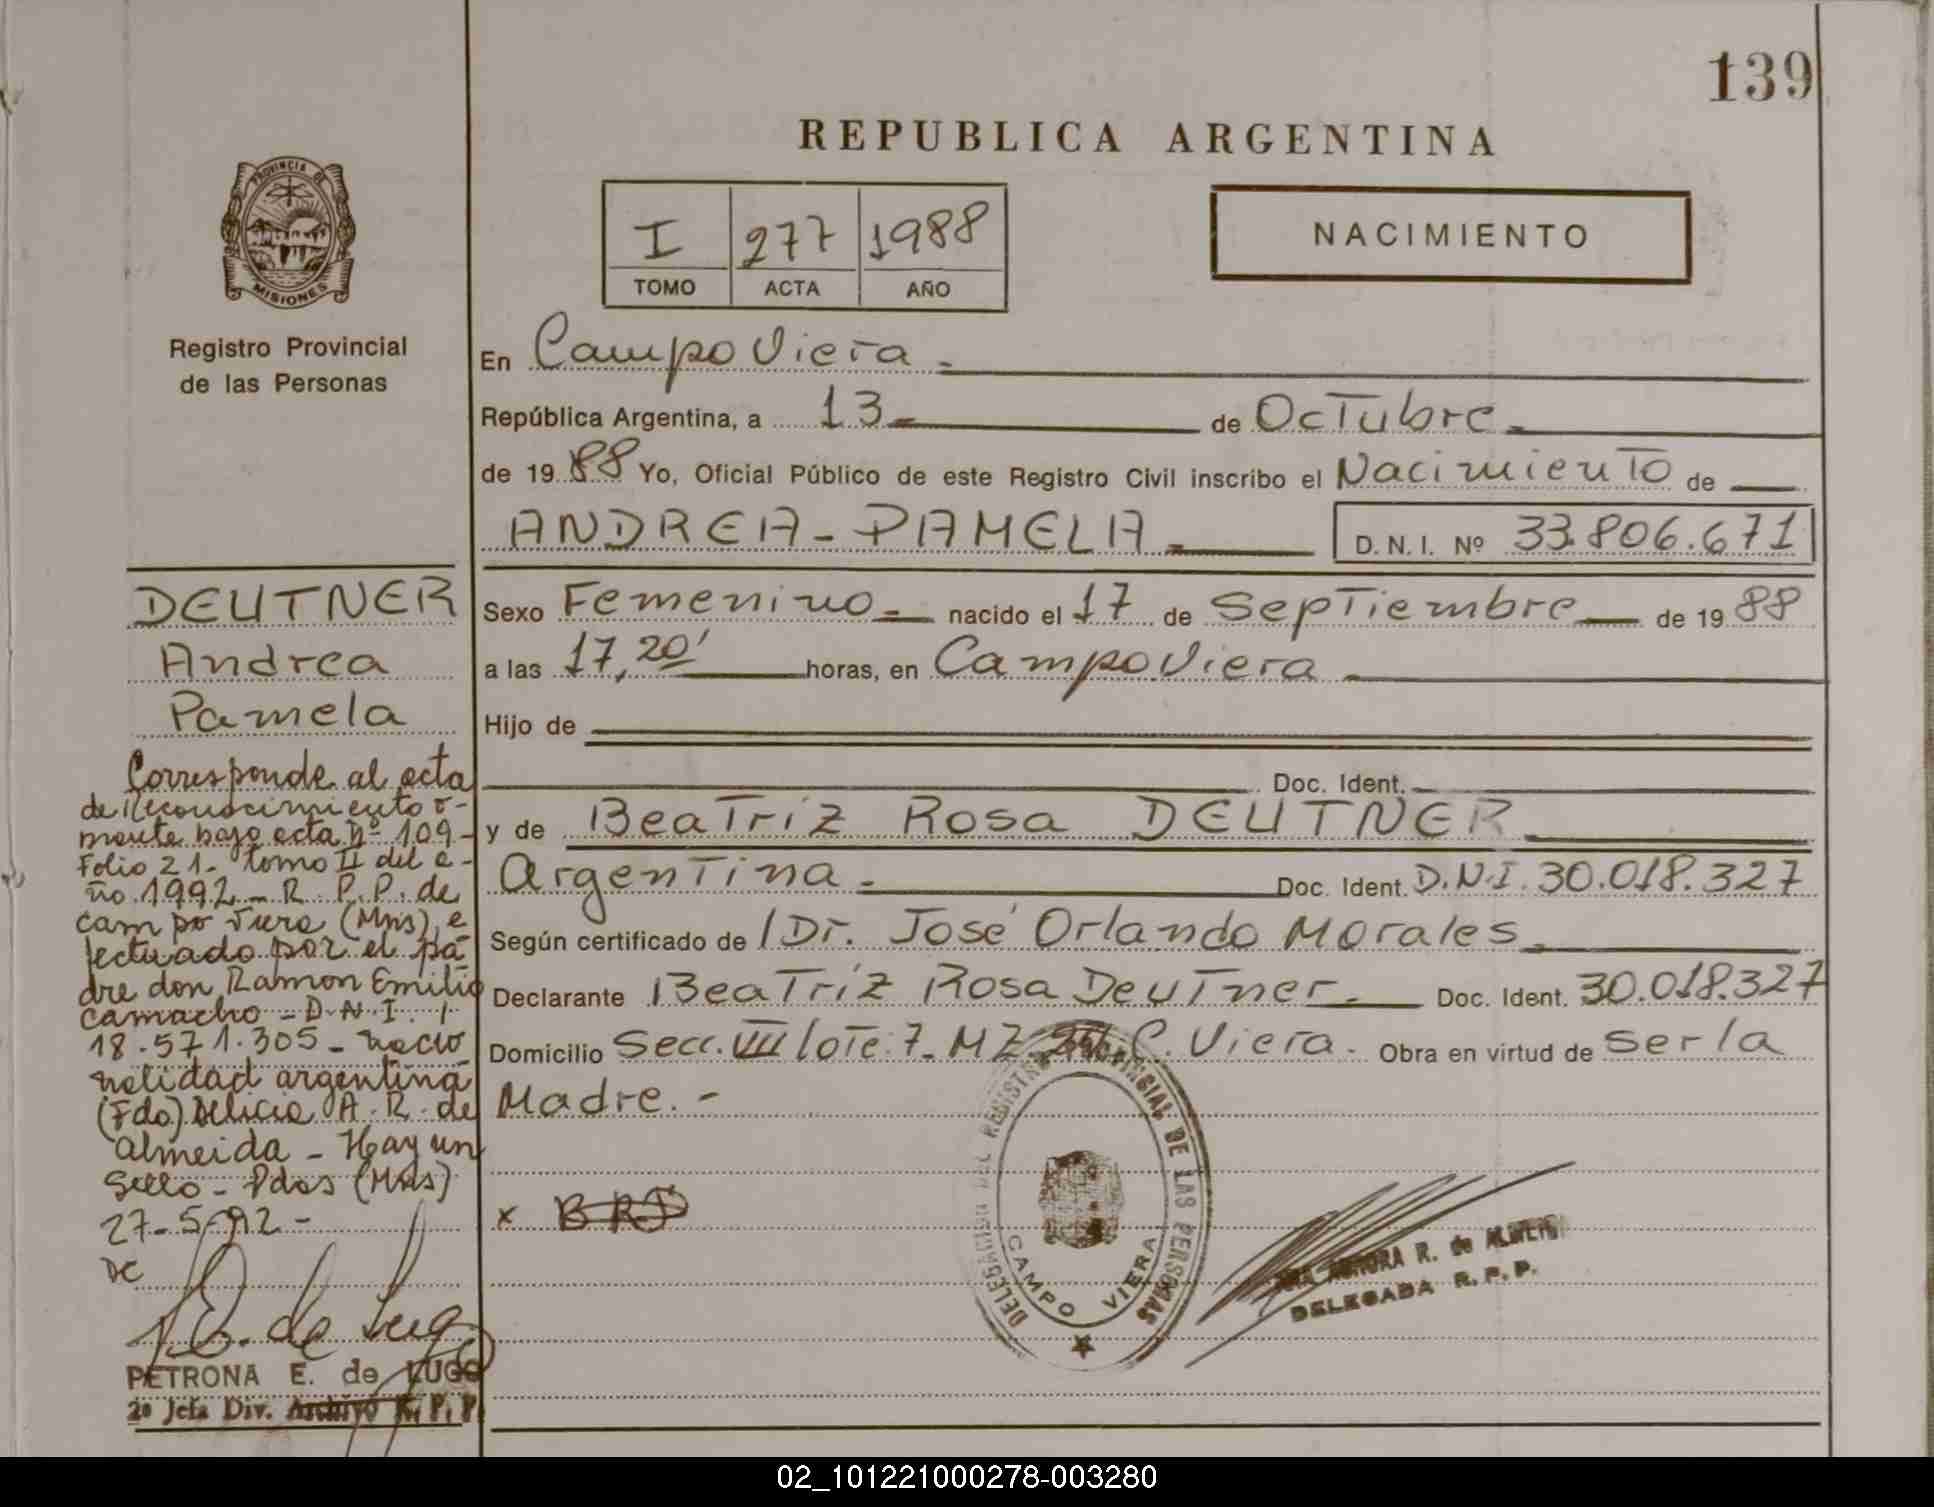 139
REPUBLICA ARGENTINA
PROVINCIA DE
MISIONES
Registro Provincial
de las Personas
I 277 1988
TOMO ACTA AÑO
NACIMIENTO
En Campo Viera.
República Argentina, a 13 de Octubre.
de 19 88 Yo, Oficial Público de este Registro Civil inscribo el Nacimiento de
ANDREA - PAMELA D. N. I. Nº 33.806.671
Sexo Femenino nacido el 17 de Septiembre de 19 88
a las 17,20' horas, en Campo Viera
Hijo de
Doc. Ident.
y de Beatriz Rosa DEUTNER
Argentina. Doc. Ident. D.N.I. 30.018.327
Según certificado de Dr. José Orlando Morales.
Declarante Beatriz Rosa Deutner. Doc. Ident. 30.018.327
Domicilio Secc. VIII lote: 7. MZ. C. Viera. Obra en virtud de ser la
Madre. -
x BRD
DELEGACION DEL REGISTRO PROVINCIAL DE LAS PERSONAS
CAMPO VIERA
AURORA R. de ALMEIDA
DELEGADA R. P. P.
DEUTNER
Andrea
Pamela
Corresponde al acta
de Reconocimiento o-
mante bajo acta nº 109-
Folio 21- tomo II del a-
ño 1992 - R. P. P. de
Campo Viera (Mns), e
fectuado por el pa-
dre don Ramon Emilio
Camacho - D.N.I.
18.571.305 - nacio
nalidad argentina
(Fdo) Delicia A. R. de
Almeida - Hay un
Sello - Pdas (Mns)
27-5-92 -
DE
PETRONA E. de LUGO
2º Jefa Div. Archivo R. P. P.
02_101221000278-003280